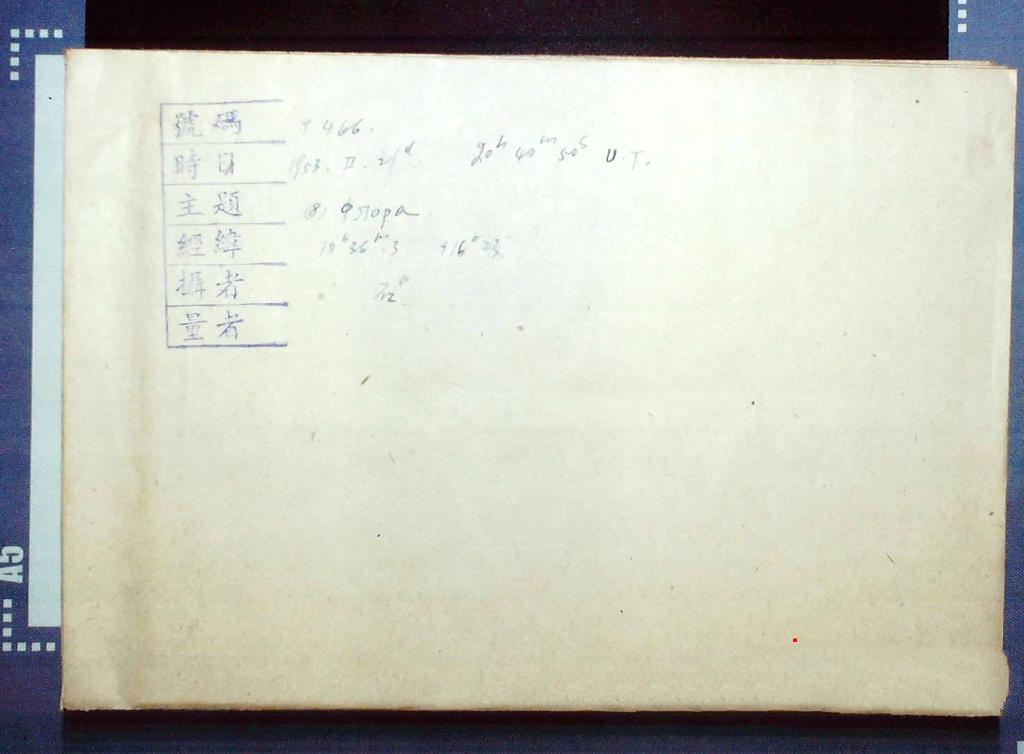 號碼 T 466.
時日 1953. II. 21ᵈ 20ʰ 40ᵐ 50ˢ U.T.
主題 (8) Флора
經緯 36ᵐ.3 +16°
攝者 石
量者
A5